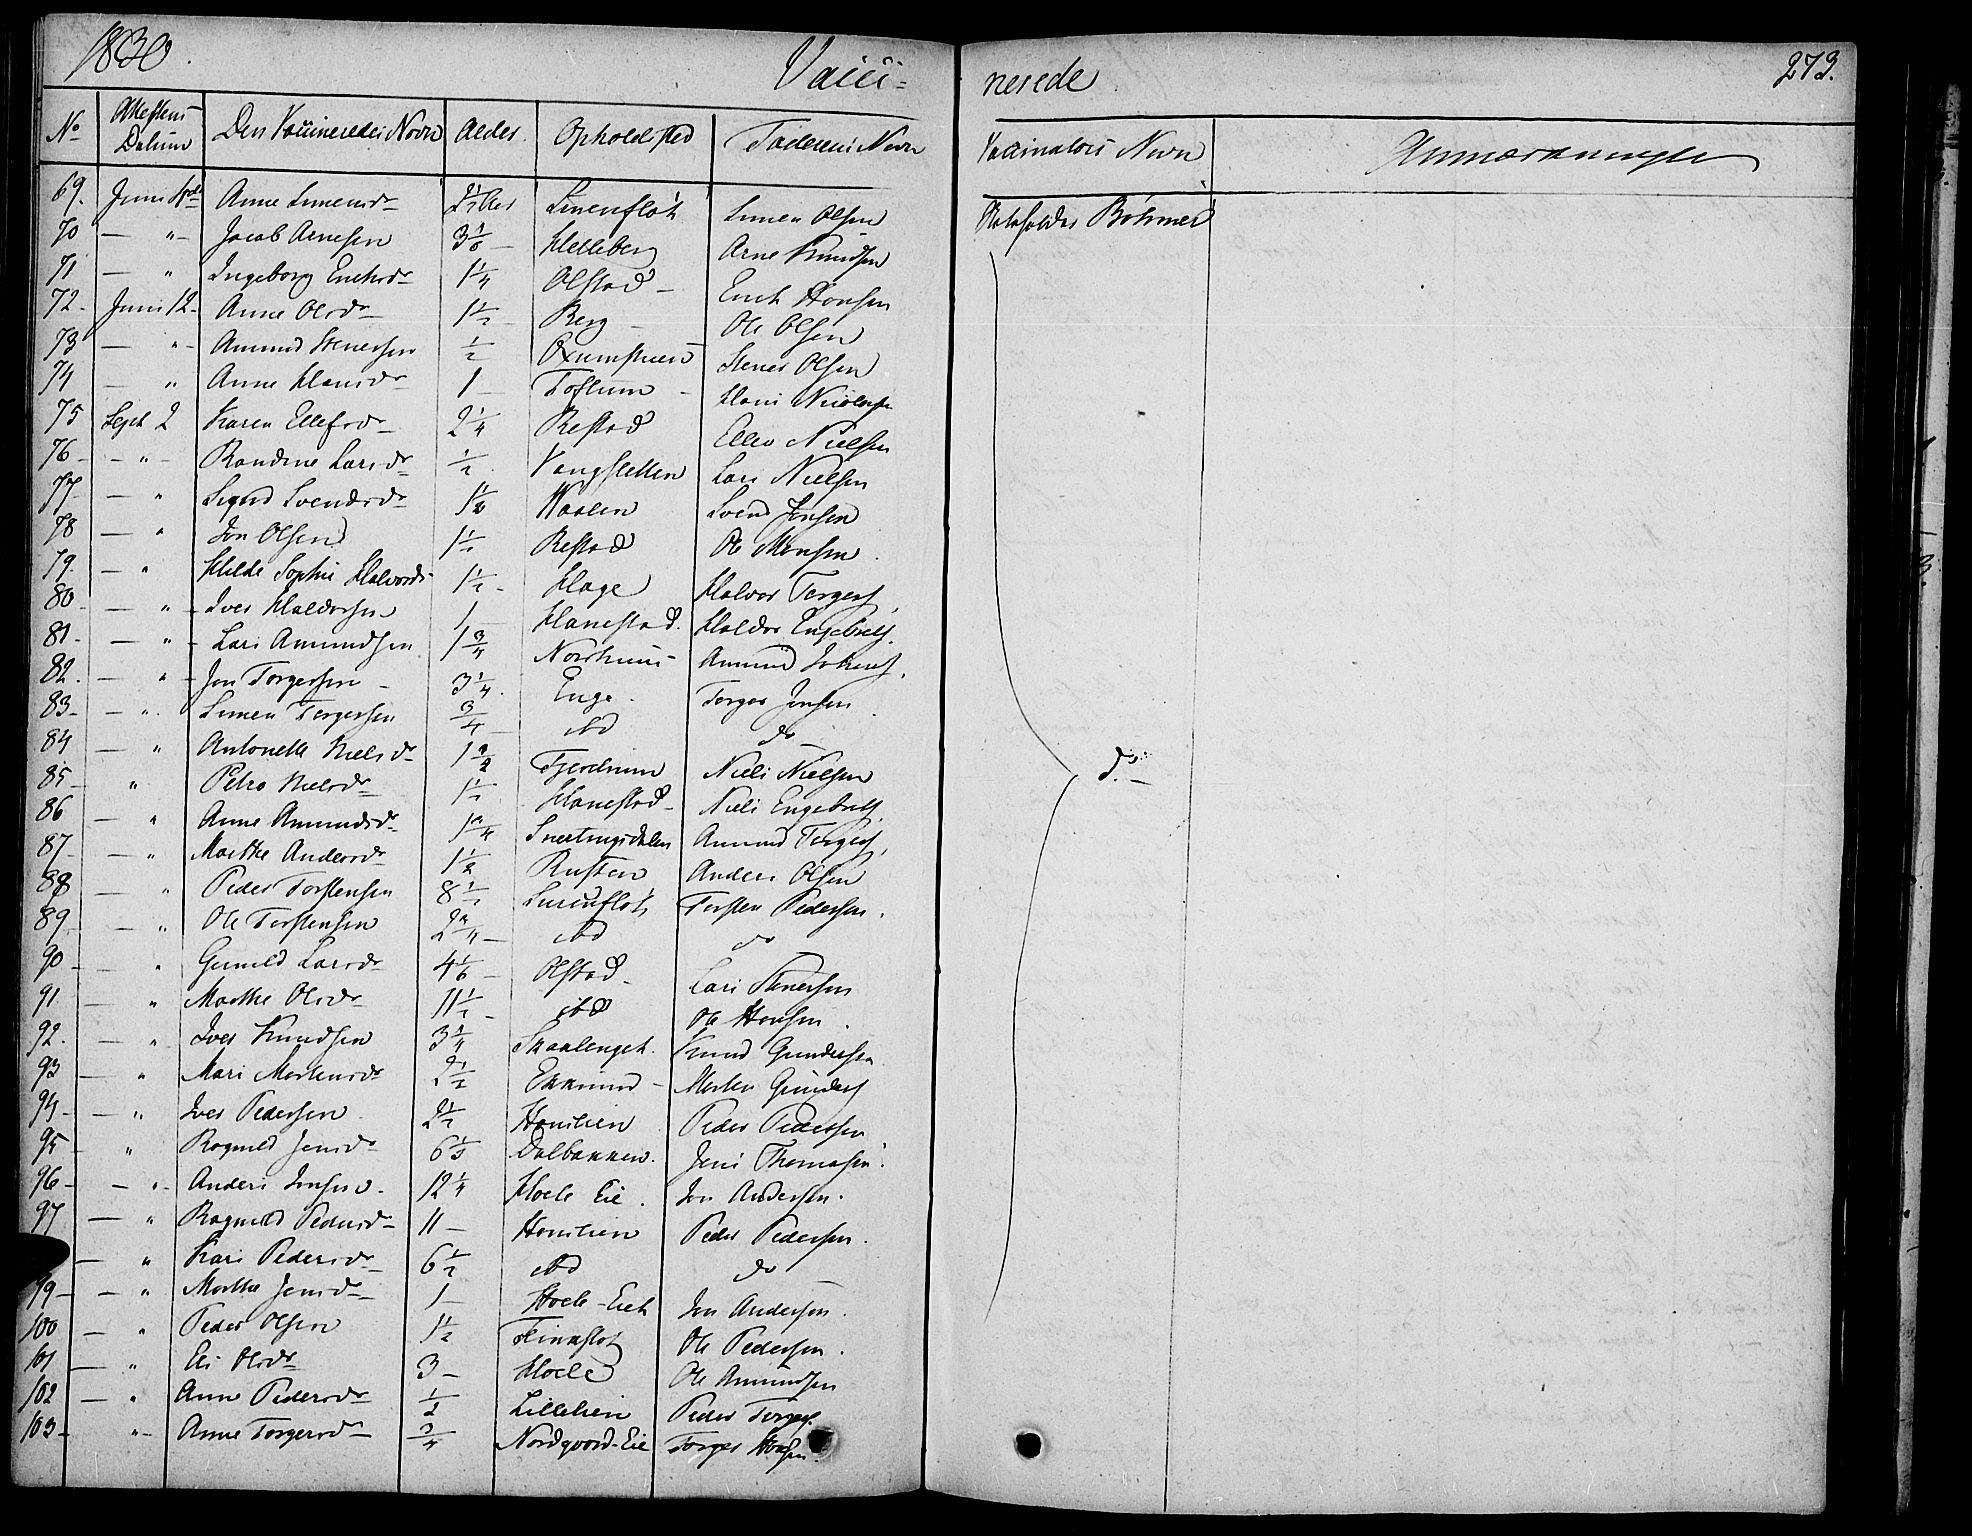 1830. Vacci- nerede. 273.
No Attestens Datum Den Vaccineredes Navn Alder. Opholdsted Faderens Navn Vaccinators Navn Anmærkninger
69. Juni Anne Simensdr 2½ Aar Simen Olsen Böhmer
70 — " — Jacob Arnesen 3 — Helleberg Arne Knudsen
71 — " Ingeborg Erichsdr 1¼ Olstad — Erich Hansen
72 — Juni 12 — Anne Olsdr 1½ — Berg — Ole Olsen
73 — " — Amund Stenersen ½ Stener Olsen
74 — " Anne Hansdr 1 — Toftum — Hans
75 Sept 2 Karen Ellefsdr 2¼ Restad Ellev Nielsen
76 — " — Randine Larsdr ½ Vangsletten Lars Nielsen
77 — " Sigrid Svendsdr 1½ Svend Jonsen
78 — " Jon Olsen 1½ Restad Ole Monsen
79. — " Sophie Halvorsd 1½ — Hage Halvor Torgers.
80 — " — Iver Haldorsen 1 Hanestad. Haldor Engebrets.
81 — " — Lars Amundsen 1¾ Amund
82. — " — Jon Torgersen — 3¼. Enge Torger Jonsen
83 — " . Simen Torgersen ¾ — ibd do —
84 — " Antonette Nielsdr 1½ Fjerdrum Niels Nielsen
85 — " Petra Nielsdr 1½ Hanestad — Niels Engebrets.
86 — " Anne Amundsdr 1¼ Snertingsdalen Amund Torgers.
87 — " Marthe Andersdr 1½ Rusten Anders Olsen
88 — " Peder Torstensen 8½ Torsten Pedersen.
89 — " Ole Torstensen 2¼ — ibd do
90 — " Gunild Larsdr 4⅙ — Olstad — Lars Stenersen
91 — " Marthe Olsdr 11½ — ibd Ole Hansen.
92. — " Iver Knudsen 3¼ Skaalenget. Knud Gundersen
93 — " Mari Mortensdr 2½ — Morten Gunders
94 — " Iver Pedersen 2½ Honilien Peder Pedersen
95 " Ragnild Jensdr 6⅓ Dalbakken. Jens Thomasen.
96 — " Anders Jonsen. 12¼ Hoele Eie. Jon Andersen.
97 — " Ragnild Pedersdr 11 — Honilien Peder Pedersen.
— " Kari Pedersdr 6½ ibd do
99 — " Marthe Jensdr 1 — Hoele-Eiet Jon Andersen.
100 — " Peder Olsen 1½ Ole Pedersen.
101 — " Eli Olsdr 3 — Hoele Ole Amundsen
102 — " Anne Pedersdr ½ Lillelien Peder Torgers.
103 — " — Anne Torgersdr ¾ Nordgaard-Eie Torger Hansen.
do —